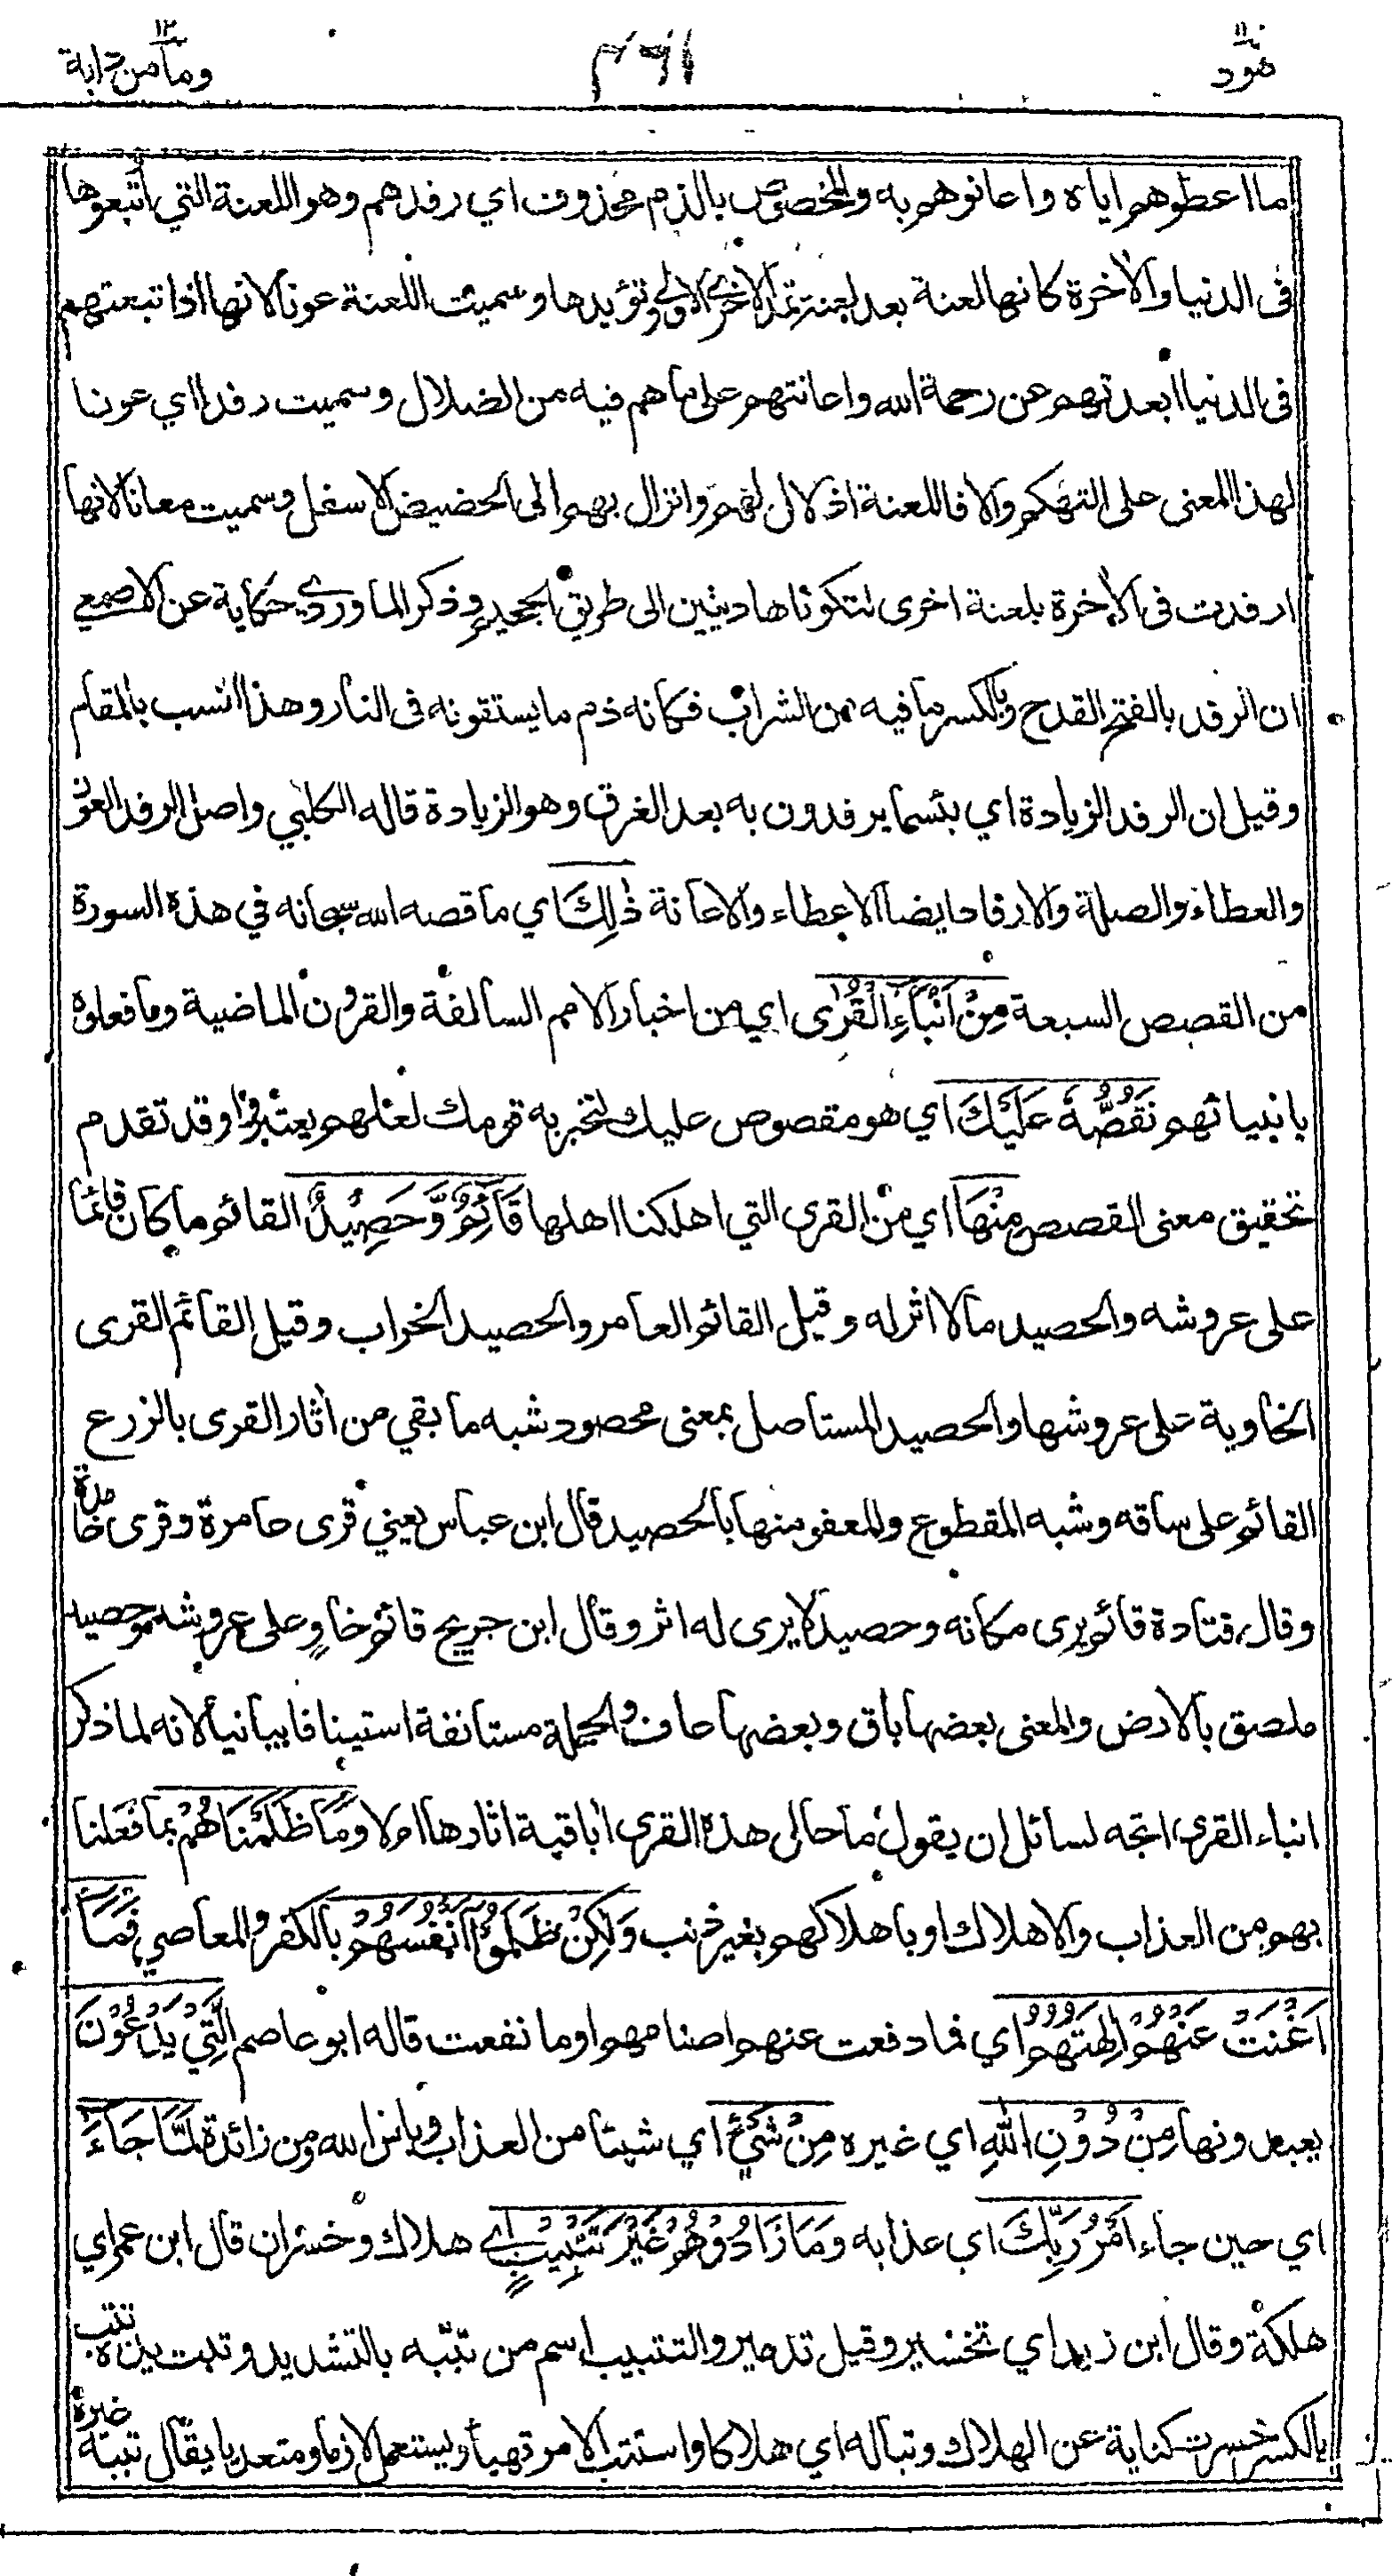 هود ١١
٤٦١
وما من دابة ١٢
ما اعطوهم اياه واعانوهم به والمخصوص بالذم محذوف اي رفدهم وهو اللعنة التي اتبعوها
في الدنيا والاخرة كانها لعنة بعد لعنة تمد الاخرى الاولى وتؤيدها وسميت اللعنة عونا لانها اذا تبعتهم
في الدنيا ابعدتهم عن رحمة الله واعانتهم على ما هم فيه من الضلال وسميت رفدا اي عونا
لهذا المعنى على التهكم والا فاللعنة اذلال لهم وانزال بهم الى الحضيض الاسفل وسميت معانا لانها
ارفدت في الاخرة بلعنة اخرى لتكونا هاديتين الى طريق الجحيم وذكر الماوردي حكاية عن الاصمعي
ان الرفد بالفتح القدح وبالكسر ما فيه من الشراب فكانه ذم ما يستقونه في النار وهذا انسب بالمقام
وقيل ان الرفد الزيادة اي بئسما يرفدون به بعد الغرق وهو الزيادة قاله الكلبي واصل الرفد العون
والعطاء والصلة والارفاد ايضا الاعطاء والاعانة ذٰلِكَ اي ما قصه الله سبحانه في هذه السورة
من القصص السبعة مِنْ اَنْۢبَآءِ الْقُرٰى اي من اخبار الامم السالفة والقرون الماضية وما فعلوه
بانبيائهم نَقُصُّهٗ عَلَيْكَ اي هو مقصوص عليك لتخبر به قومك لعلهم يعتبروا وقد تقدم
تحقيق معنى القصص مِنْهَا اي من القرى التي اهلكنا اهلها قَآئِمٌ وَّحَصِيْدٌ القائم ما كان قائما
على عروشه والحصيد ما لا اثر له وقيل القائم العامر والحصيد الخراب وقيل القائم القرى
الخاوية على عروشها والحصيد المستاصل بمعنى محصود شبه ما بقي من اثار القرى بالزرع
القائم على ساقه وشبه المقطوع والمعفو منها بالحصيد قال ابن عباس يعني قرى عامرة وقرى خامدة
وقال قتادة قائم يرى مكانه وحصيد لا يرى له اثر وقال ابن جريج قائم خاوٍ على عروشه وحصيد
ملصق بالارض والمعنى بعضها باق وبعضها عاف والجملة مستانفة استينافا بيانيا لانه لما ذكر
انباء القرى اتجه لسائل ان يقول ما حال هذه القرى اباقية اثارها ام لا وَمَا ظَلَمْنَاهُمْ بما فعلنا
بهم من العذاب والاهلاك او باهلاكهم بغير ذنب وَلٰكِنْ ظَلَمُوْٓا اَنْفُسَهُمْ بالكفر والمعاصي فَمَآ
اَغْنَتْ عَنْهُمْ اٰلِهَتُهُمُ اي فما دفعت عنهم اصنامهم او ما نفعت قاله ابو عاصم الَّتِيْ يَدْعُوْنَ
يعبدونها مِنْ دُوْنِ اللّٰهِ اي غيره مِنْ شَيْءٍ اي شيئا من العذاب وباس الله ومن زائدة لَمَّا جَآءَ
اي حين جاء اَمْرُ رَبِّكَ اي عذابه وَمَا زَادُوْهُمْ غَيْرَ تَتْبِيْبٍ اي هلاك وخسران قال ابن عمر اي
هلكة وقال ابن زيد اي تخسير وقيل تدمير والتتبيب اسم من تببه بالتشديد وتبت يده تتب
بالكسر خسرت كناية عن الهلاك وتبا له اي هلاكا واستتب الامر تهيأ ويستعمل لازما ومتعديا يقال تببه غيره